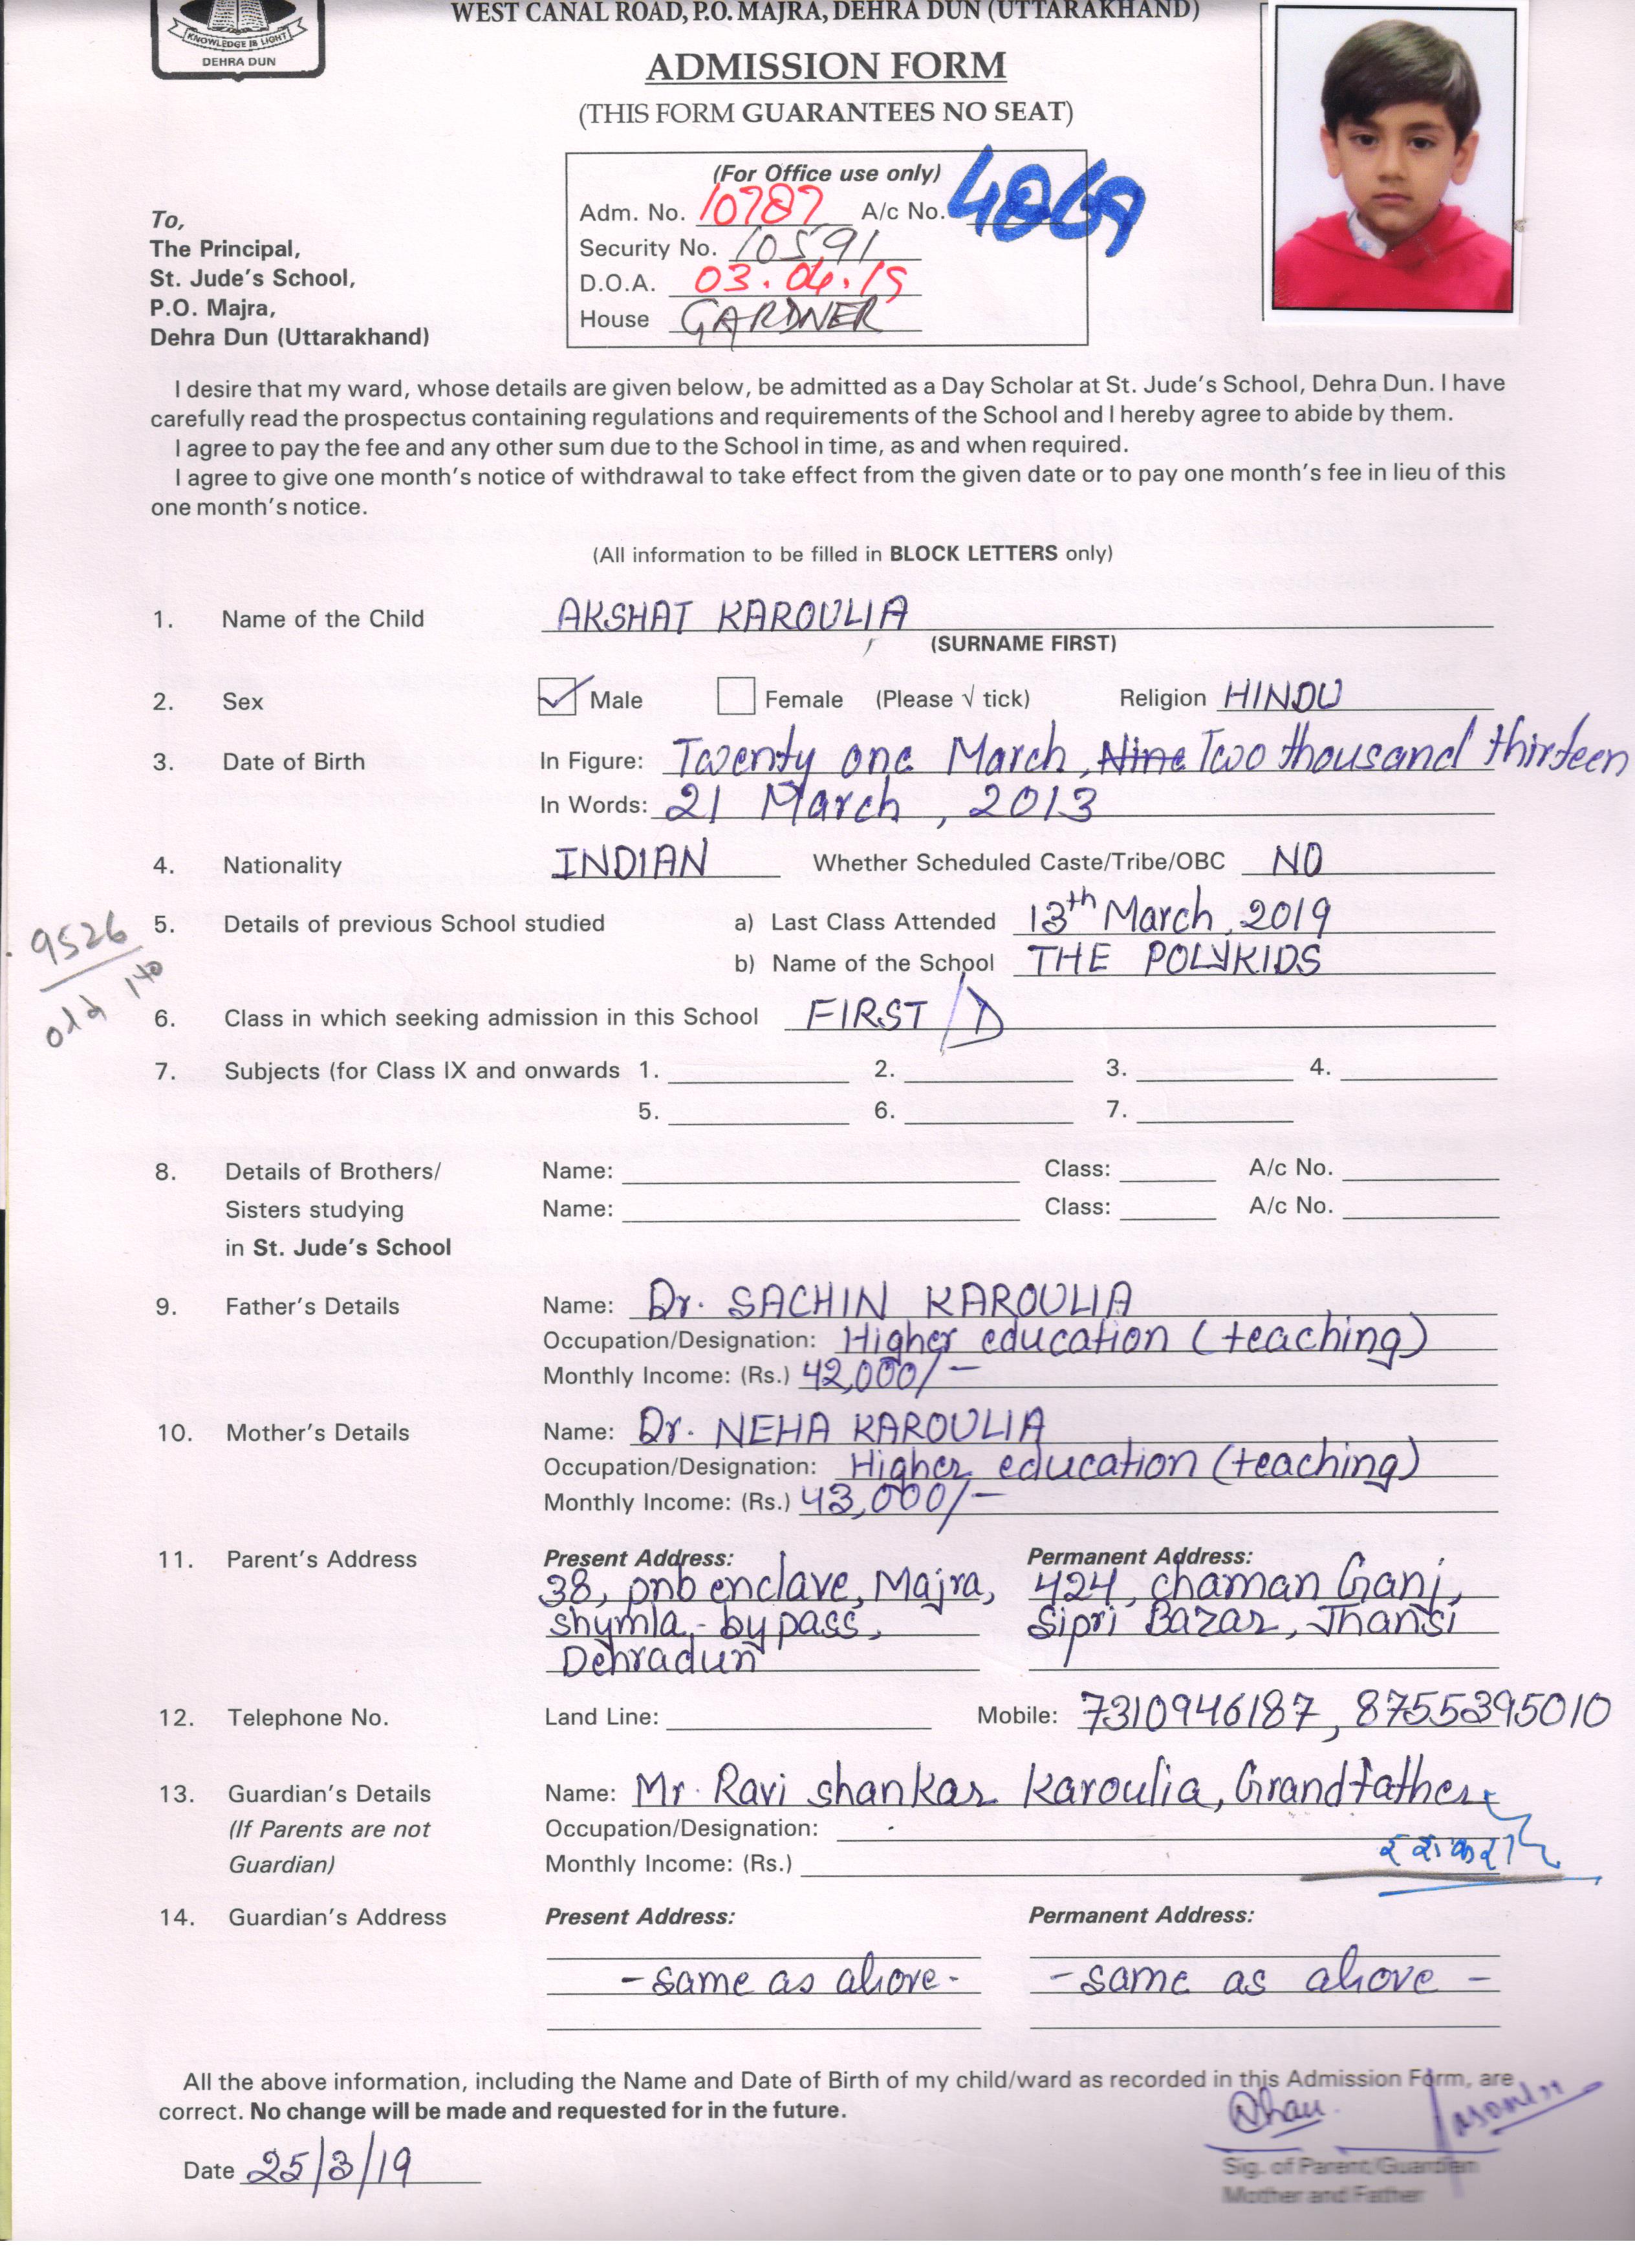 WEST CANAL ROAD, P.O. MAJRA, DEHRA DUN (UTTARAKHAND)
KNOWLEDGE IS LIGHT
DEHRA DUN
ADMISSION FORM
(THIS FORM GUARANTEES NO SEAT)
(For Office use only)
Adm. No. 10787 A/c No. 4869
Security No. 10591
D.O.A. 03.04.19
House GARDNER
To,
The Principal,
St. Jude's School,
P.O. Majra,
Dehra Dun (Uttarakhand)
I desire that my ward, whose details are given below, be admitted as a Day Scholar at St. Jude's School, Dehra Dun. I have
carefully read the prospectus containing regulations and requirements of the School and I hereby agree to abide by them.
I agree to pay the fee and any other sum due to the School in time, as and when required.
I agree to give one month's notice of withdrawal to take effect from the given date or to pay one month's fee in lieu of this
one month's notice.
(All information to be filled in BLOCK LETTERS only)
1. Name of the Child AKSHAT KAROULIA
(SURNAME FIRST)
2. Sex Male Female (Please √ tick) Religion HINDU
3. Date of Birth In Figure: Twenty one March, Nine Two thousand thirteen
In Words: 21 March, 2013
4. Nationality INDIAN Whether Scheduled Caste/Tribe/OBC NO
5. Details of previous School studied a) Last Class Attended 13th March, 2019
9526
b) Name of the School THE POLYKIDS
old 140
6. Class in which seeking admission in this School FIRST / D
7. Subjects (for Class IX and onwards 1. 2. 3. 4.
5. 6. 7.
8. Details of Brothers/ Name: Class: A/c No.
Sisters studying Name: Class: A/c No.
in St. Jude's School
9. Father's Details Name: Dr. SACHIN KAROULIA
Occupation/Designation: Higher education (teaching)
Monthly Income: (Rs.) 42,000/-
10. Mother's Details Name: Dr. NEHA KAROULIA
Occupation/Designation: Higher education (teaching)
Monthly Income: (Rs.) 43,000/-
11. Parent's Address Present Address: Permanent Address:
38, pnb enclave, Majra, 424, chaman Ganj,
shymla - by pass, Sipri Bazar, Jhansi
Dehradun
12. Telephone No. Land Line: Mobile: 7310946187, 8755395010
13. Guardian's Details Name: Mr. Ravi shankar Karoulia, Grandfather
(If Parents are not Occupation/Designation:
Guardian) Monthly Income: (Rs.)
14. Guardian's Address Present Address: Permanent Address:
- same as above - - same as above -
All the above information, including the Name and Date of Birth of my child/ward as recorded in this Admission Form, are
correct. No change will be made and requested for in the future.
Date 25/3/19
Sig. of Parent/Guardian
Mother and Father